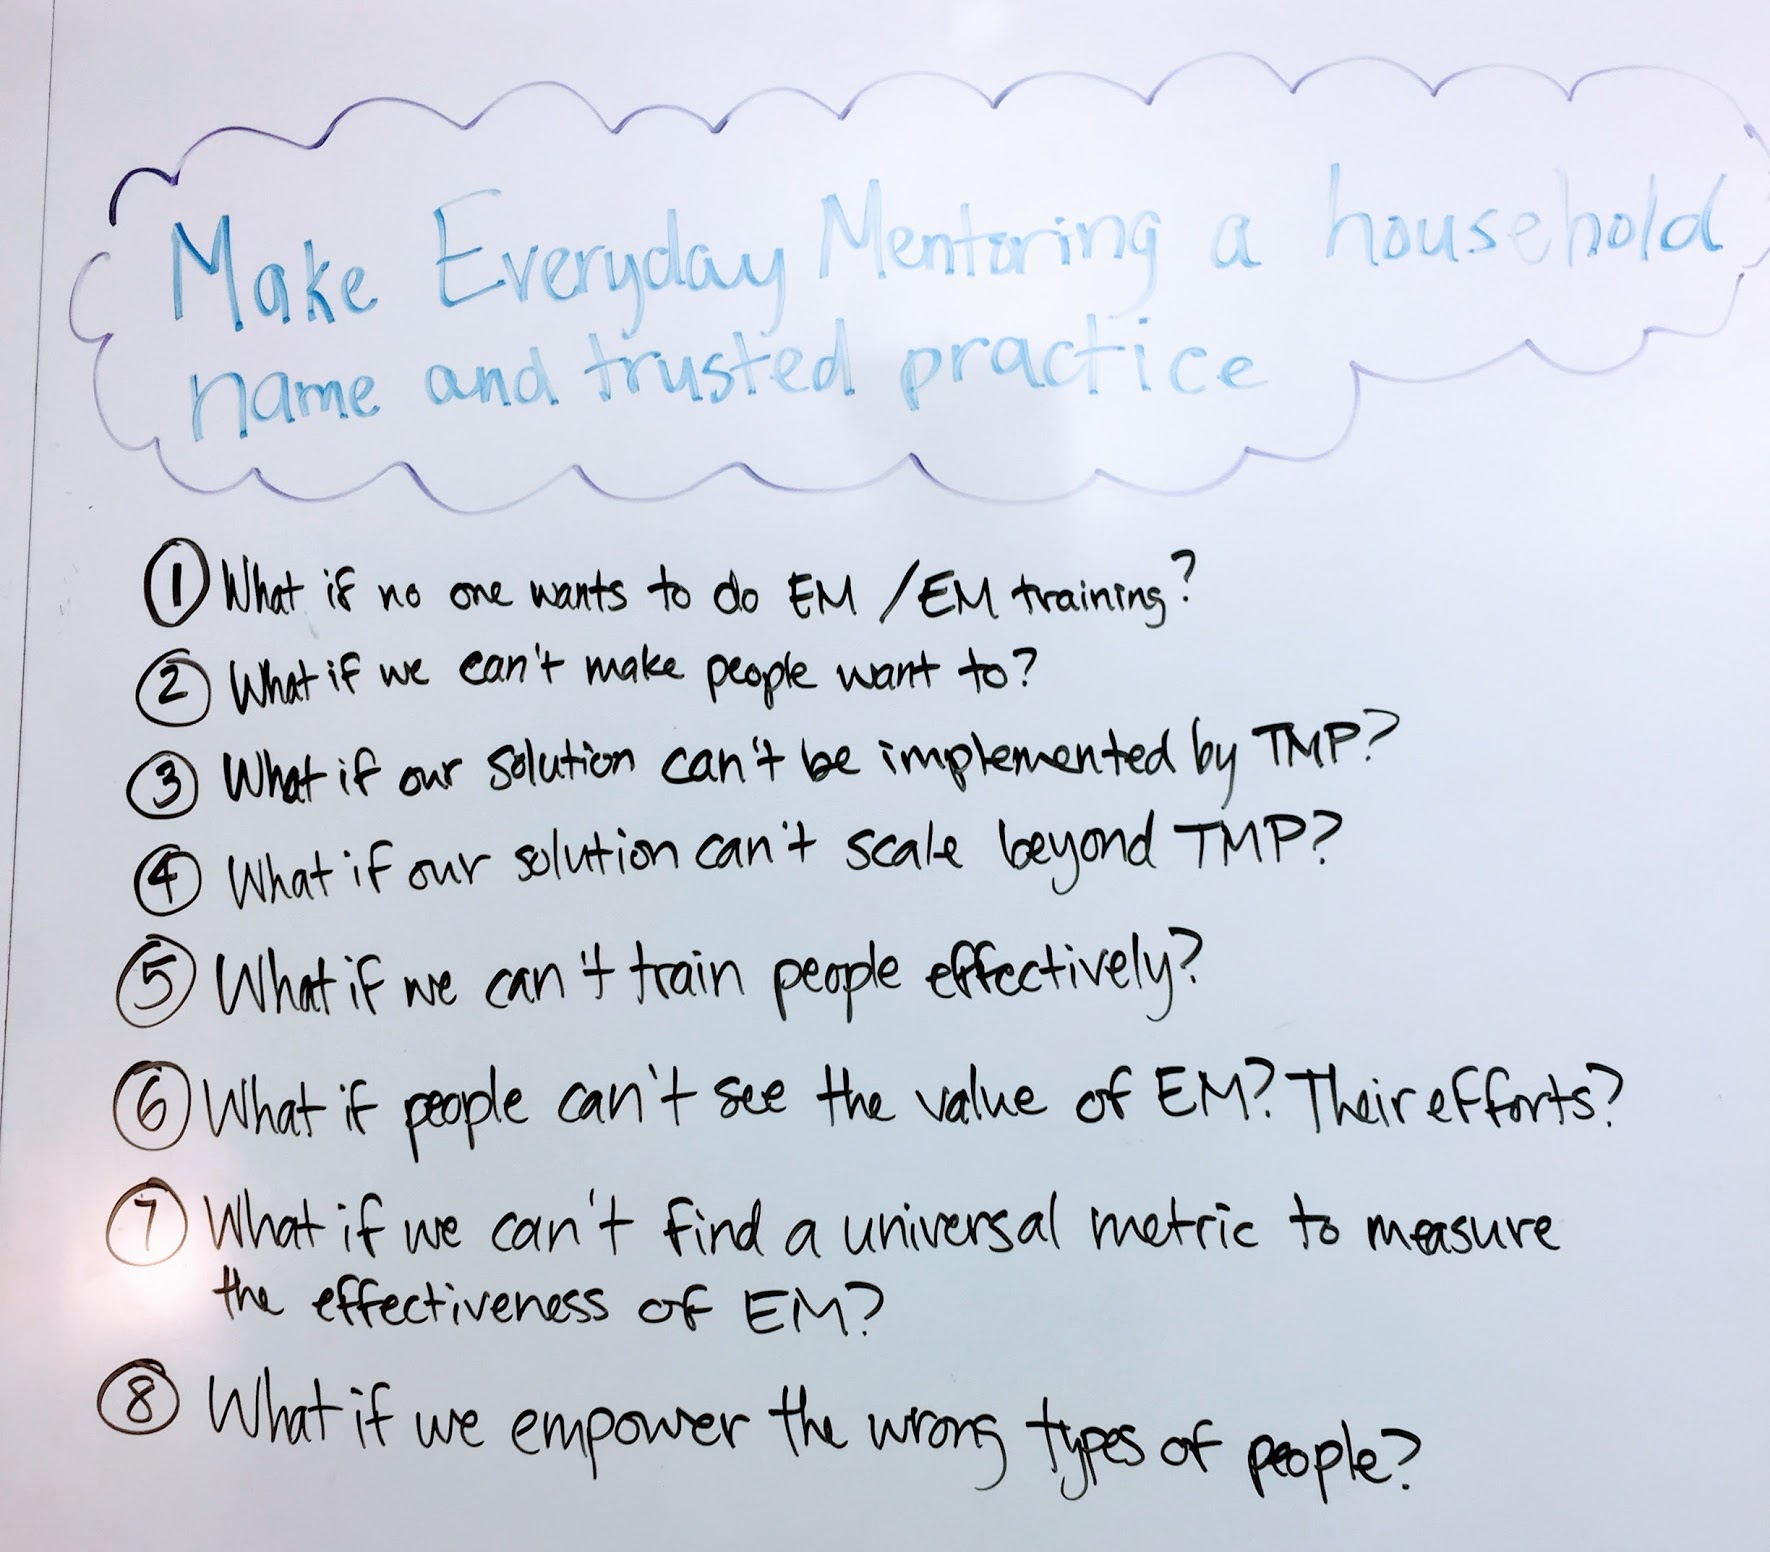 Make Everyday Mentoring a household
name and trusted practice
① What if no one wants to do EM / EM training?
② What if we can't make people want to?
③ What if our solution can't be implemented by TMP?
④ What if our solution can't scale beyond TMP?
⑤ What if we can't train people effectively?
⑥ What if people can't see the value of EM? Their efforts?
⑦ What if we can't find a universal metric to measure
the effectiveness of EM?
⑧ What if we empower the wrong types of people?